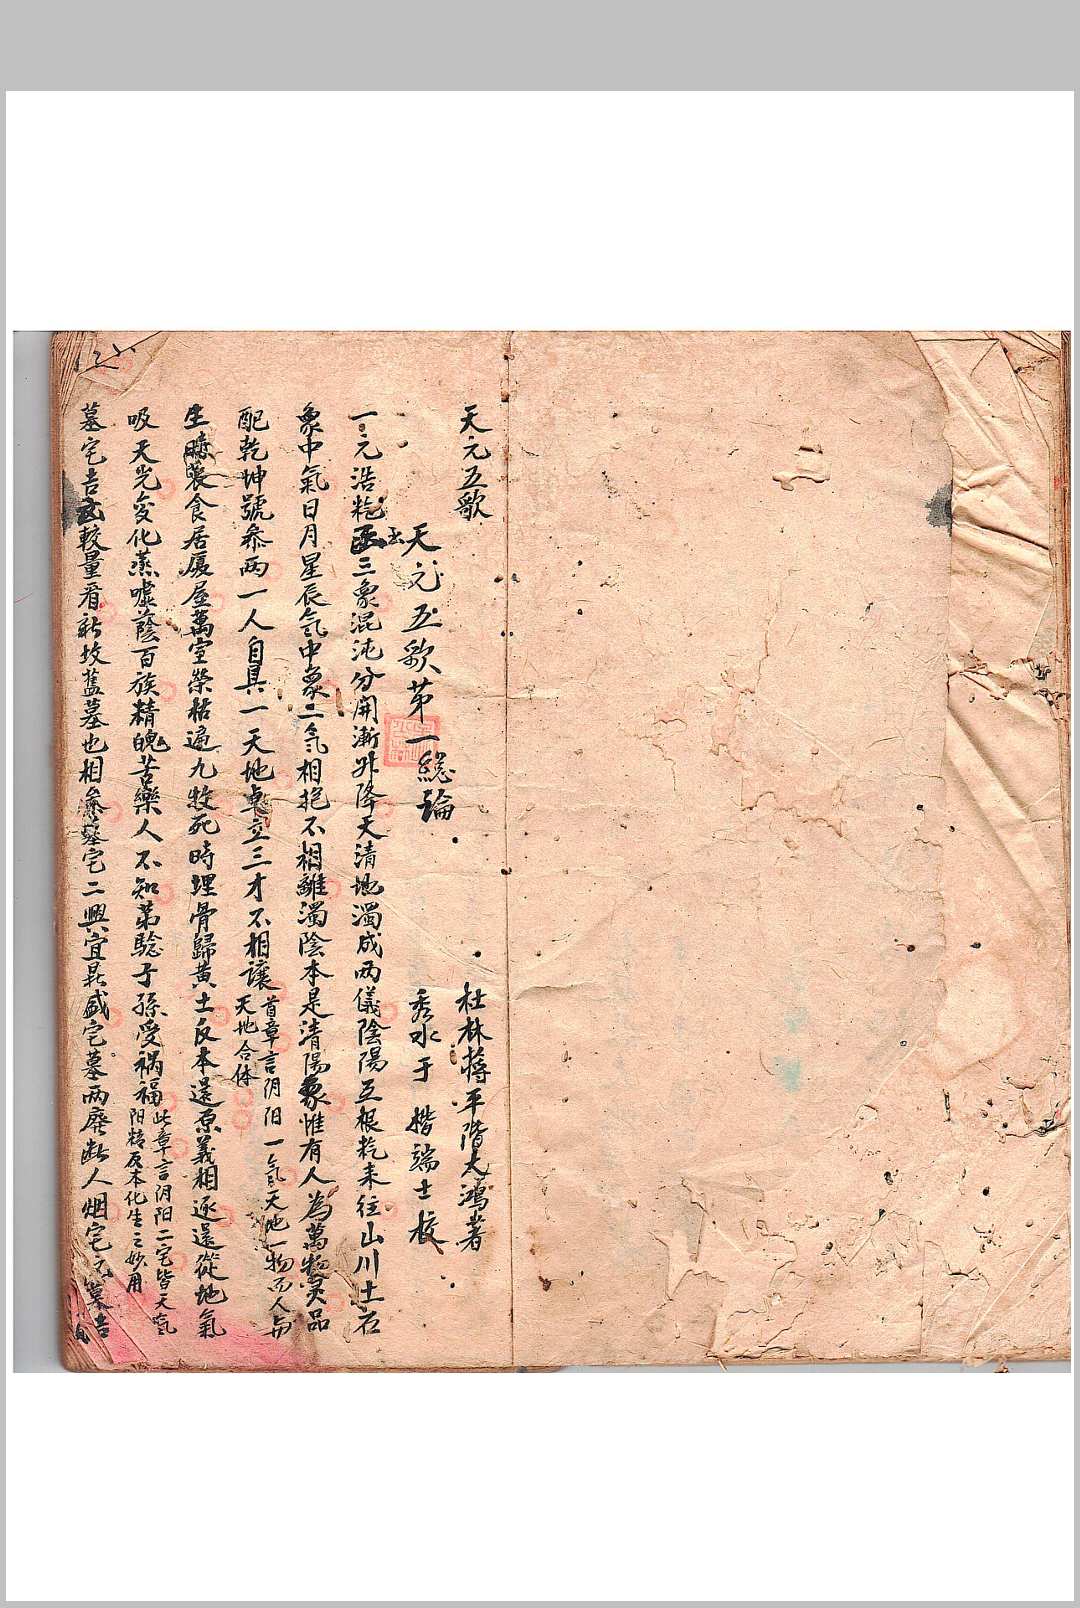 天元五歌
杜林蒋平階大鴻著
天元五歌苐一總論
秀水于 楷端士校
一元浩乾函三象混沌分開漸升降天清地濁成两儀陰陽互根乾来往山川土石
象中氣日月星辰气中象二气相抱不相離濁陰本是清陽象惟有人為萬物灵品
配乾坤號叅两一人自具一天地卓立三才不相讓
首章言阴阳一氣天地一物而人与
天地合体
生時衣食居厦屋萬室榮枯遍九牧死時埋骨歸黄土反本還原義相逐還從地氣
吸天光变化蒸嘘蔭百族精魄苦樂人不知苐驗子孫受祸福
此章言阴阳二宅皆天氣
阳精反本化生之妙用
墓宅吉凶較量看新坟舊墓也相叅墓宅二興宜昌盛宅墓两廢断人烟宅凶墓吉